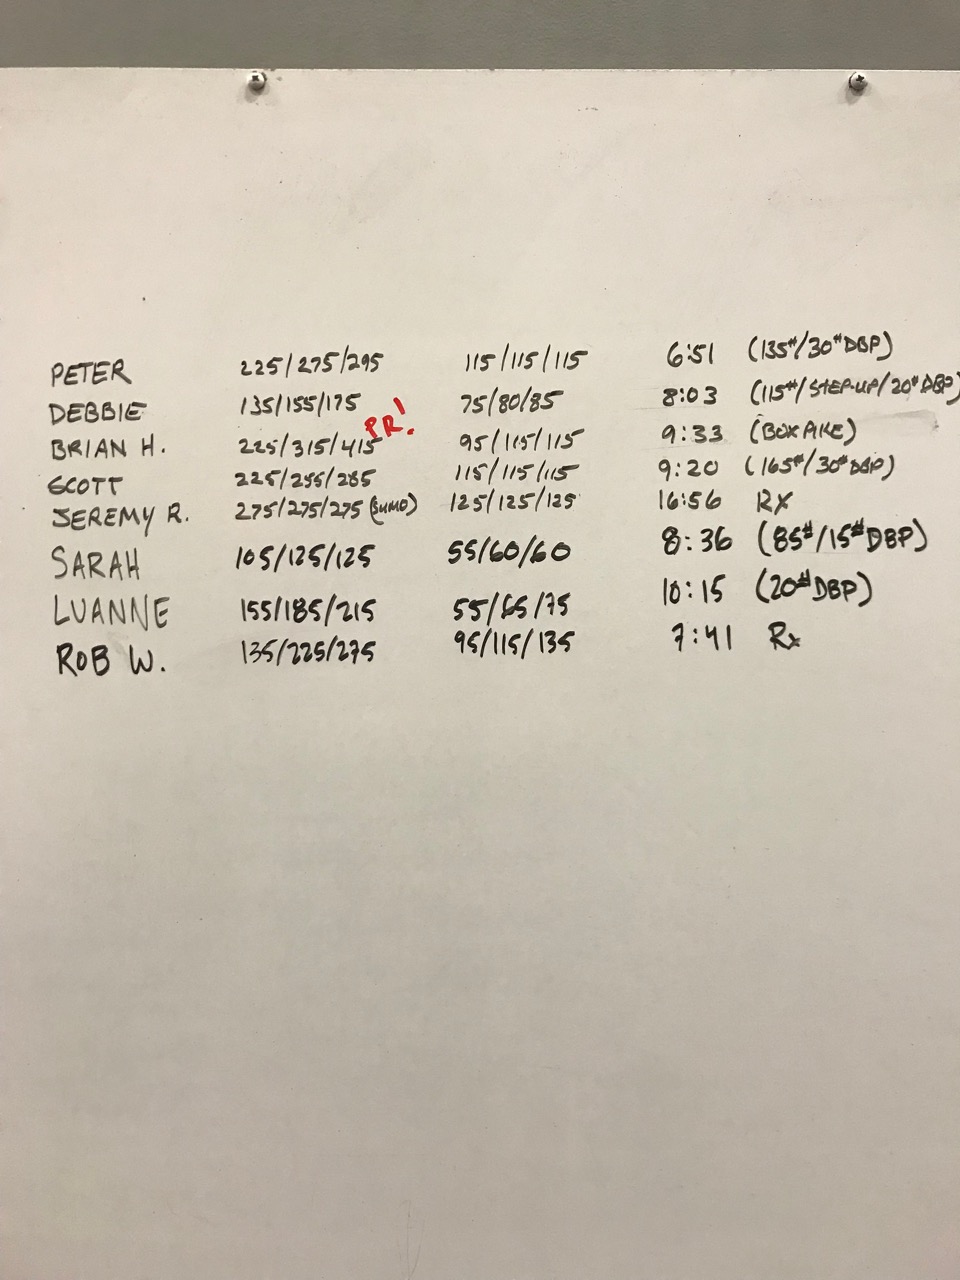 PETER 225/275/295 115/115/115 6:51 (135#/30#DBP)
DEBBIE 135/155/175 75/80/85 8:03 (115#/STEP-UP/20#DBP)
PR!
BRIAN H. 225/315/415 95/115/115 9:33 (BOX
SCOTT 225/255/285 115/115/115 9:20 (165#/30#DBP)
JEREMY R. 275/275/275 (SUMO) 125/125/125 16:56 RX
SARAH 105/125/125 55/60/60 8:36 (85#/15#DBP)
LUANNE 155/185/215 55/65/75 10:15 (20#DBP)
ROB W. 135/225/275 95/115/135 7:41 Rx